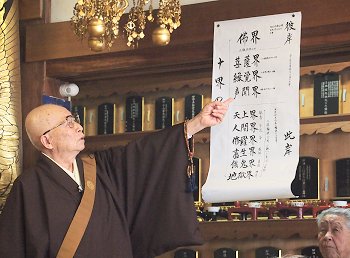 彼岸
佛界
十界
菩薩界
縁覚界
声聞界
此岸
天上界
人間界
修羅界
畜生界
餓鬼界
地獄界